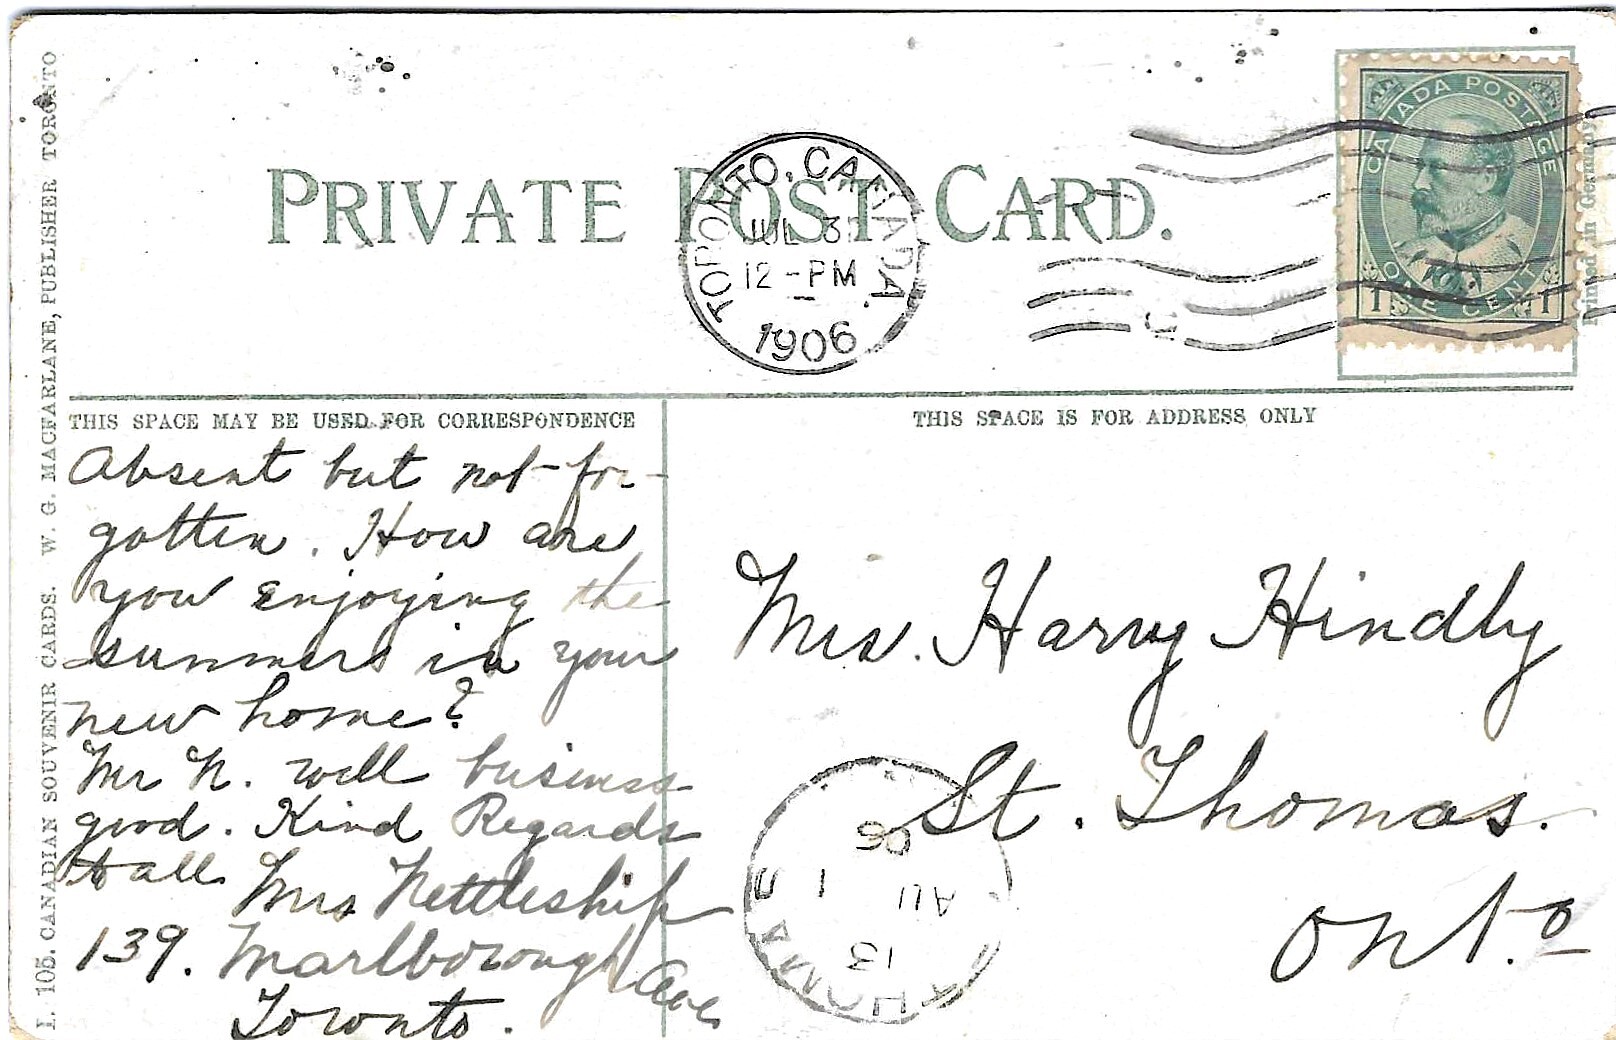 PRIVATE POST CARD.
TORONTO, CANADA.
JUL 31
12 - PM
1906
CANADA POSTAGE
ONE CENT
1 1
Printed in Germany
THIS SPACE MAY BE USED FOR CORRESPONDENCE
THIS SPACE IS FOR ADDRESS ONLY
Absent but not for-
gotten. How are
you enjoying the
summer in your
new home?
Mr N. well business
good. Kind Regards
to all. Mrs Nettleship
139. Marlborough Ave
Toronto.
Mrs. Harry Hindly
St. Thomas.
Ont.o
THOMAS
13
AU 1
06
I. 105. CANADIAN SOUVENIR CARDS. W. G. MACFARLANE, PUBLISHER TORONTO